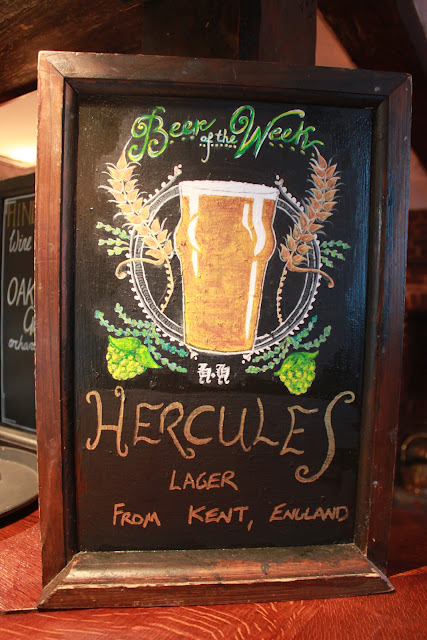 Beer
of the
Week
h.h
HERCULES
LAGER
FROM KENT, ENGLAND
Wine
OAK